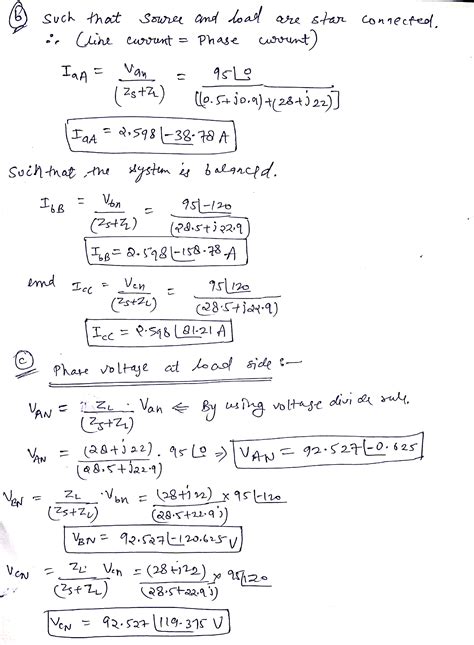 (b) Such that Source and load are star connected.
∴ (line current = Phase current)
I_aA = V_an / (Z_S+Z_L) = 95∠0 / [(0.5+j0.9)+(28+j22)]
I_aA = 2.598∠-38.78 A
Such that the system is balanced.
I_bB = V_bn / (Z_S+Z_L) = 95∠-120 / (28.5+j22.9)
I_bB = 2.598∠-158.78 A
and I_cc = V_cn / (Z_S+Z_L) = 95∠120 / (28.5+j22.9)
I_cc = 2.598∠81.21 A
(c) Phase voltage at load side :-
V_AN = Z_L / (Z_S+Z_L) · V_an ⇐ By using voltage divide rule.
V_AN = (28+j22) / (28.5+j22.9) · 95∠0 ⇒ V_AN = 92.527∠-0.625
V_BN = Z_L / (Z_S+Z_L) · V_bn = (28+j22) / (28.5+22.9j) × 95∠-120
V_BN = 92.527∠-120.625 V
V_CN = Z_L / (Z_S+Z_L) · V_cn = (28+j22) / (28.5+22.9j) × 95∠120
V_CN = 92.527∠119.375 V